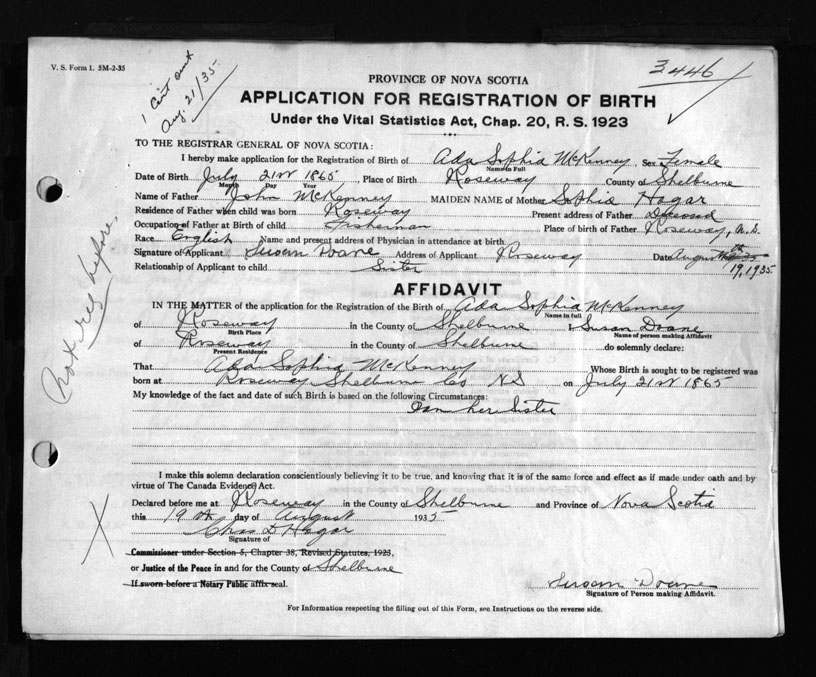 V. S. Form 1. 5M-2-35
1 Cert sent
Aug. 21/35
3446
PROVINCE OF NOVA SCOTIA
APPLICATION FOR REGISTRATION OF BIRTH
Under the Vital Statistics Act, Chap. 20, R. S. 1923
TO THE REGISTRAR GENERAL OF NOVA SCOTIA:
I hereby make application for the Registration of Birth of Ada Sophia McKenney Sex Female
Name in Full
Date of Birth July 21st 1865, Place of Birth Roseway County of Shelburne
Month Day Year
Name of Father John McKenney MAIDEN NAME of Mother Sophia Hagar
Residence of Father when child was born Roseway Present address of Father Deceased
Occupation of Father at Birth of child Fisherman Place of birth of Father Roseway, N.S.
Race English Name and present address of Physician in attendance at birth
Signature of Applicant Susan Doane Address of Applicant Roseway Date August 19, 1935
Relationship of Applicant to child Sister
Not reg before.
AFFIDAVIT
IN THE MATTER of the application for the Registration of the Birth of Ada Sophia McKenney
Name in full
of Roseway in the County of Shelburne I Susan Doane
Birth Place Name of person making Affidavit
of Roseway in the County of Shelburne do solemnly declare:
Present Residence
That Ada Sophia McKenney Whose Birth is sought to be registered was
born at Roseway Shelburne Co NS on July 21st 1865
My knowledge of the fact and date of such Birth is based on the following Circumstances:
I am her Sister
I make this solemn declaration conscientiously believing it to be true, and knowing that it is of the same force and effect as if made under oath and by
virtue of The Canada Evidence Act.
Declared before me at Roseway in the County of Shelburne and Province of Nova Scotia
this 19th day of August 1935
Chas D Hagar
Signature of
Commissioner under Section 5, Chapter 38, Revised Statutes, 1923,
or Justice of the Peace in and for the County of Shelburne
If sworn before a Notary Public affix seal.
Susan Doane
Signature of Person making Affidavit.
For Information respecting the filling out of this Form, see Instructions on the reverse side.